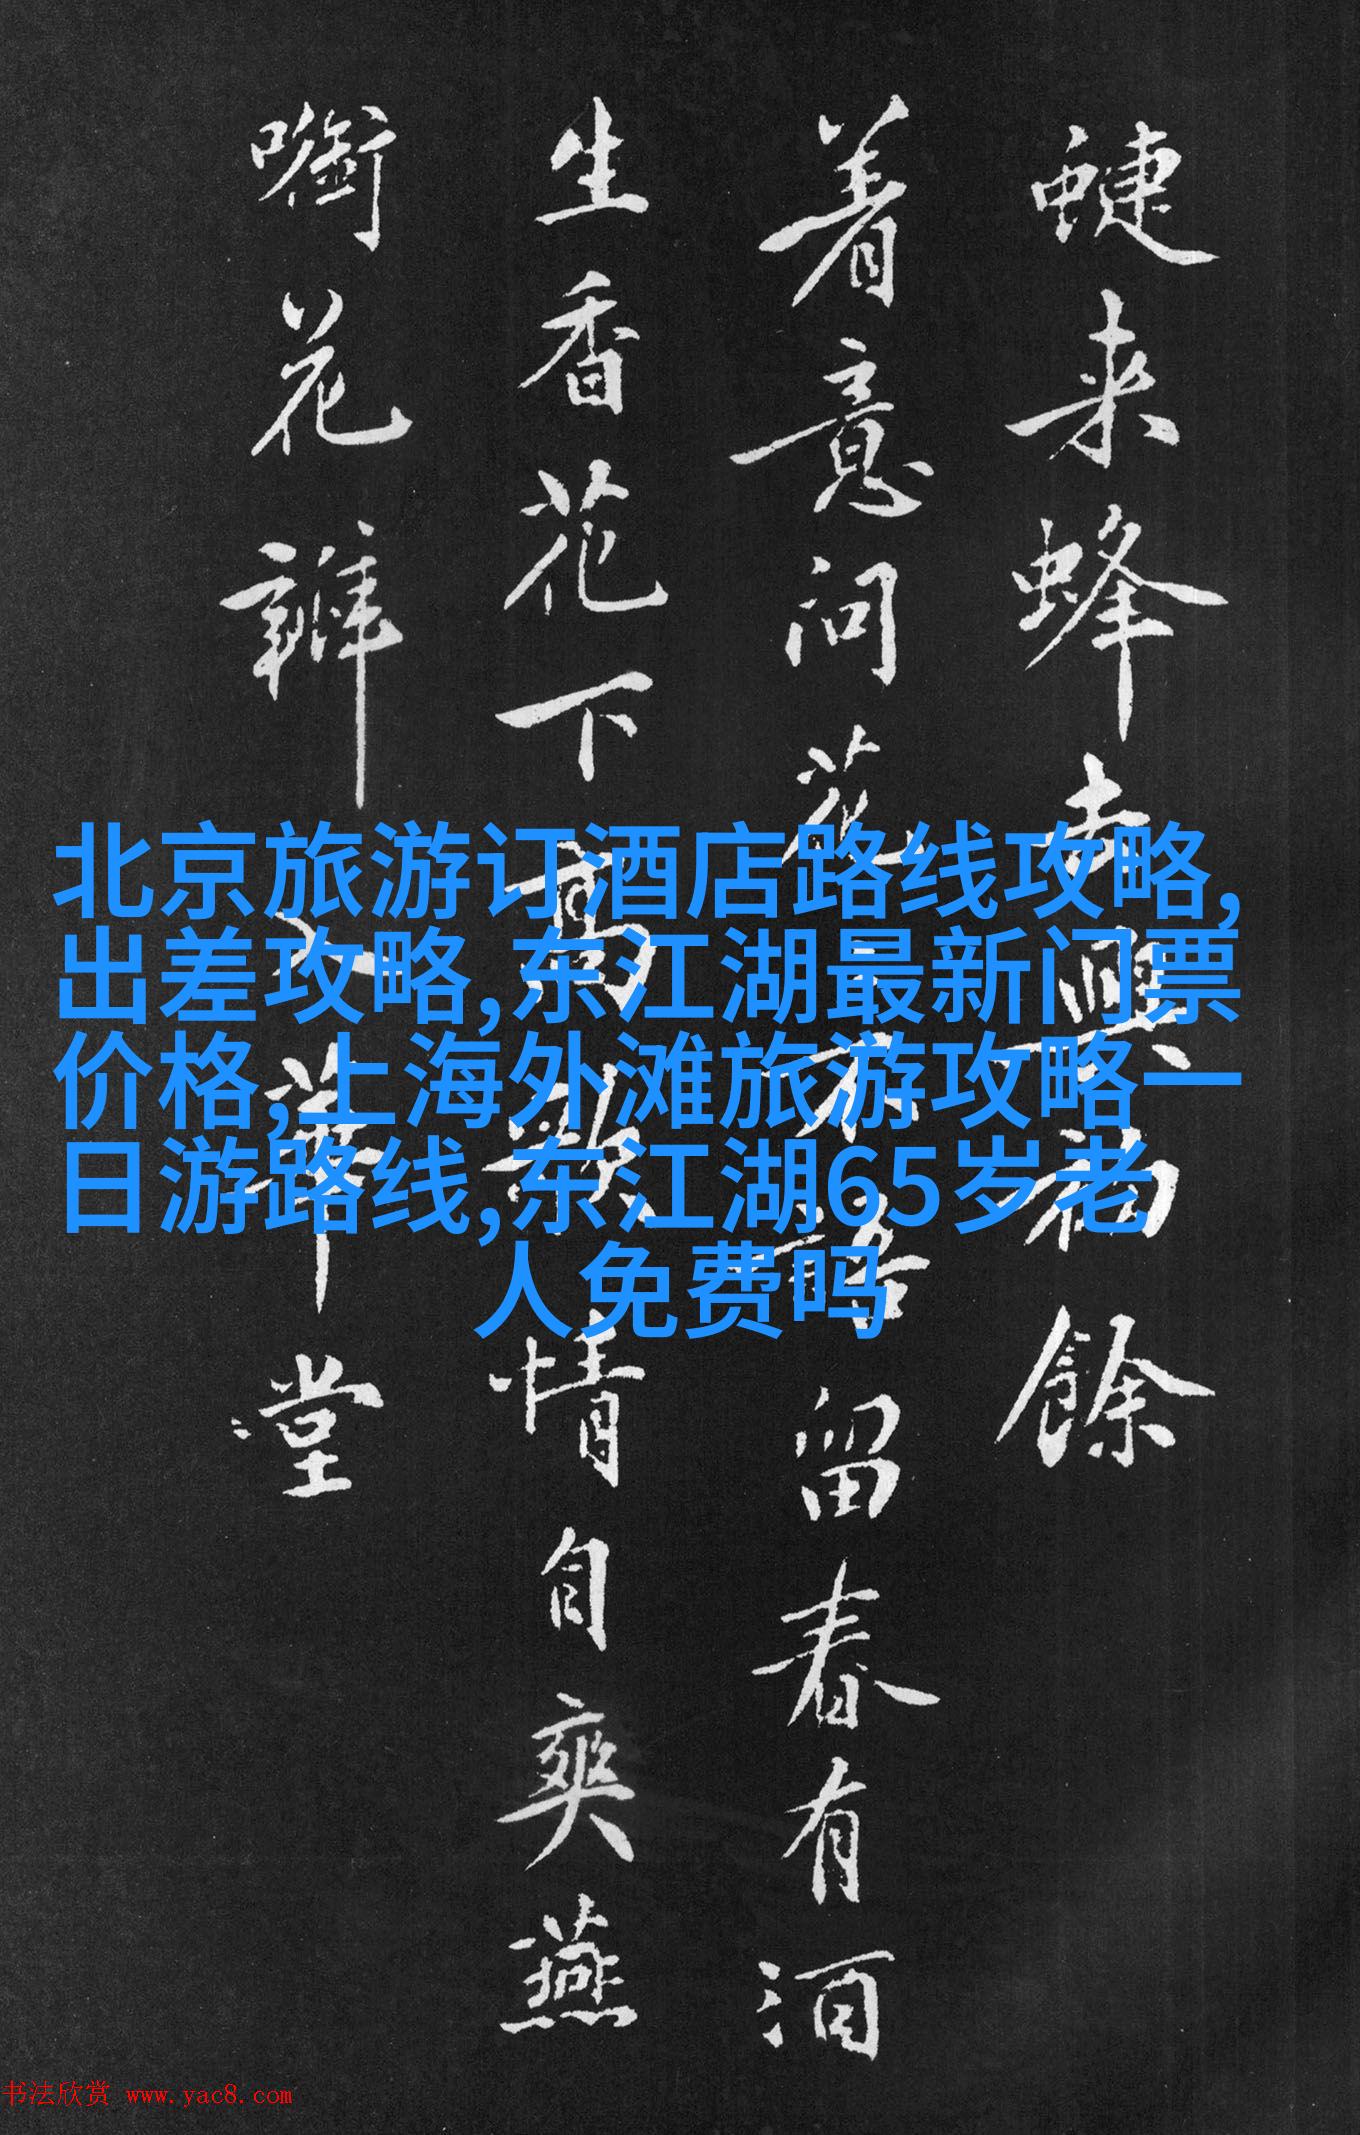 蜨来蜂去興初餘
着意问花々不語留春有酒
生香花下高歌情自爽燕
㘅花瓣入華堂
北京旅游订酒店路线攻略,
出差攻略,东江湖最新门票
价格,上海外滩旅游攻略一
日游路线,东江湖65岁老
人免费吗
书法欣赏 www.yac8.com